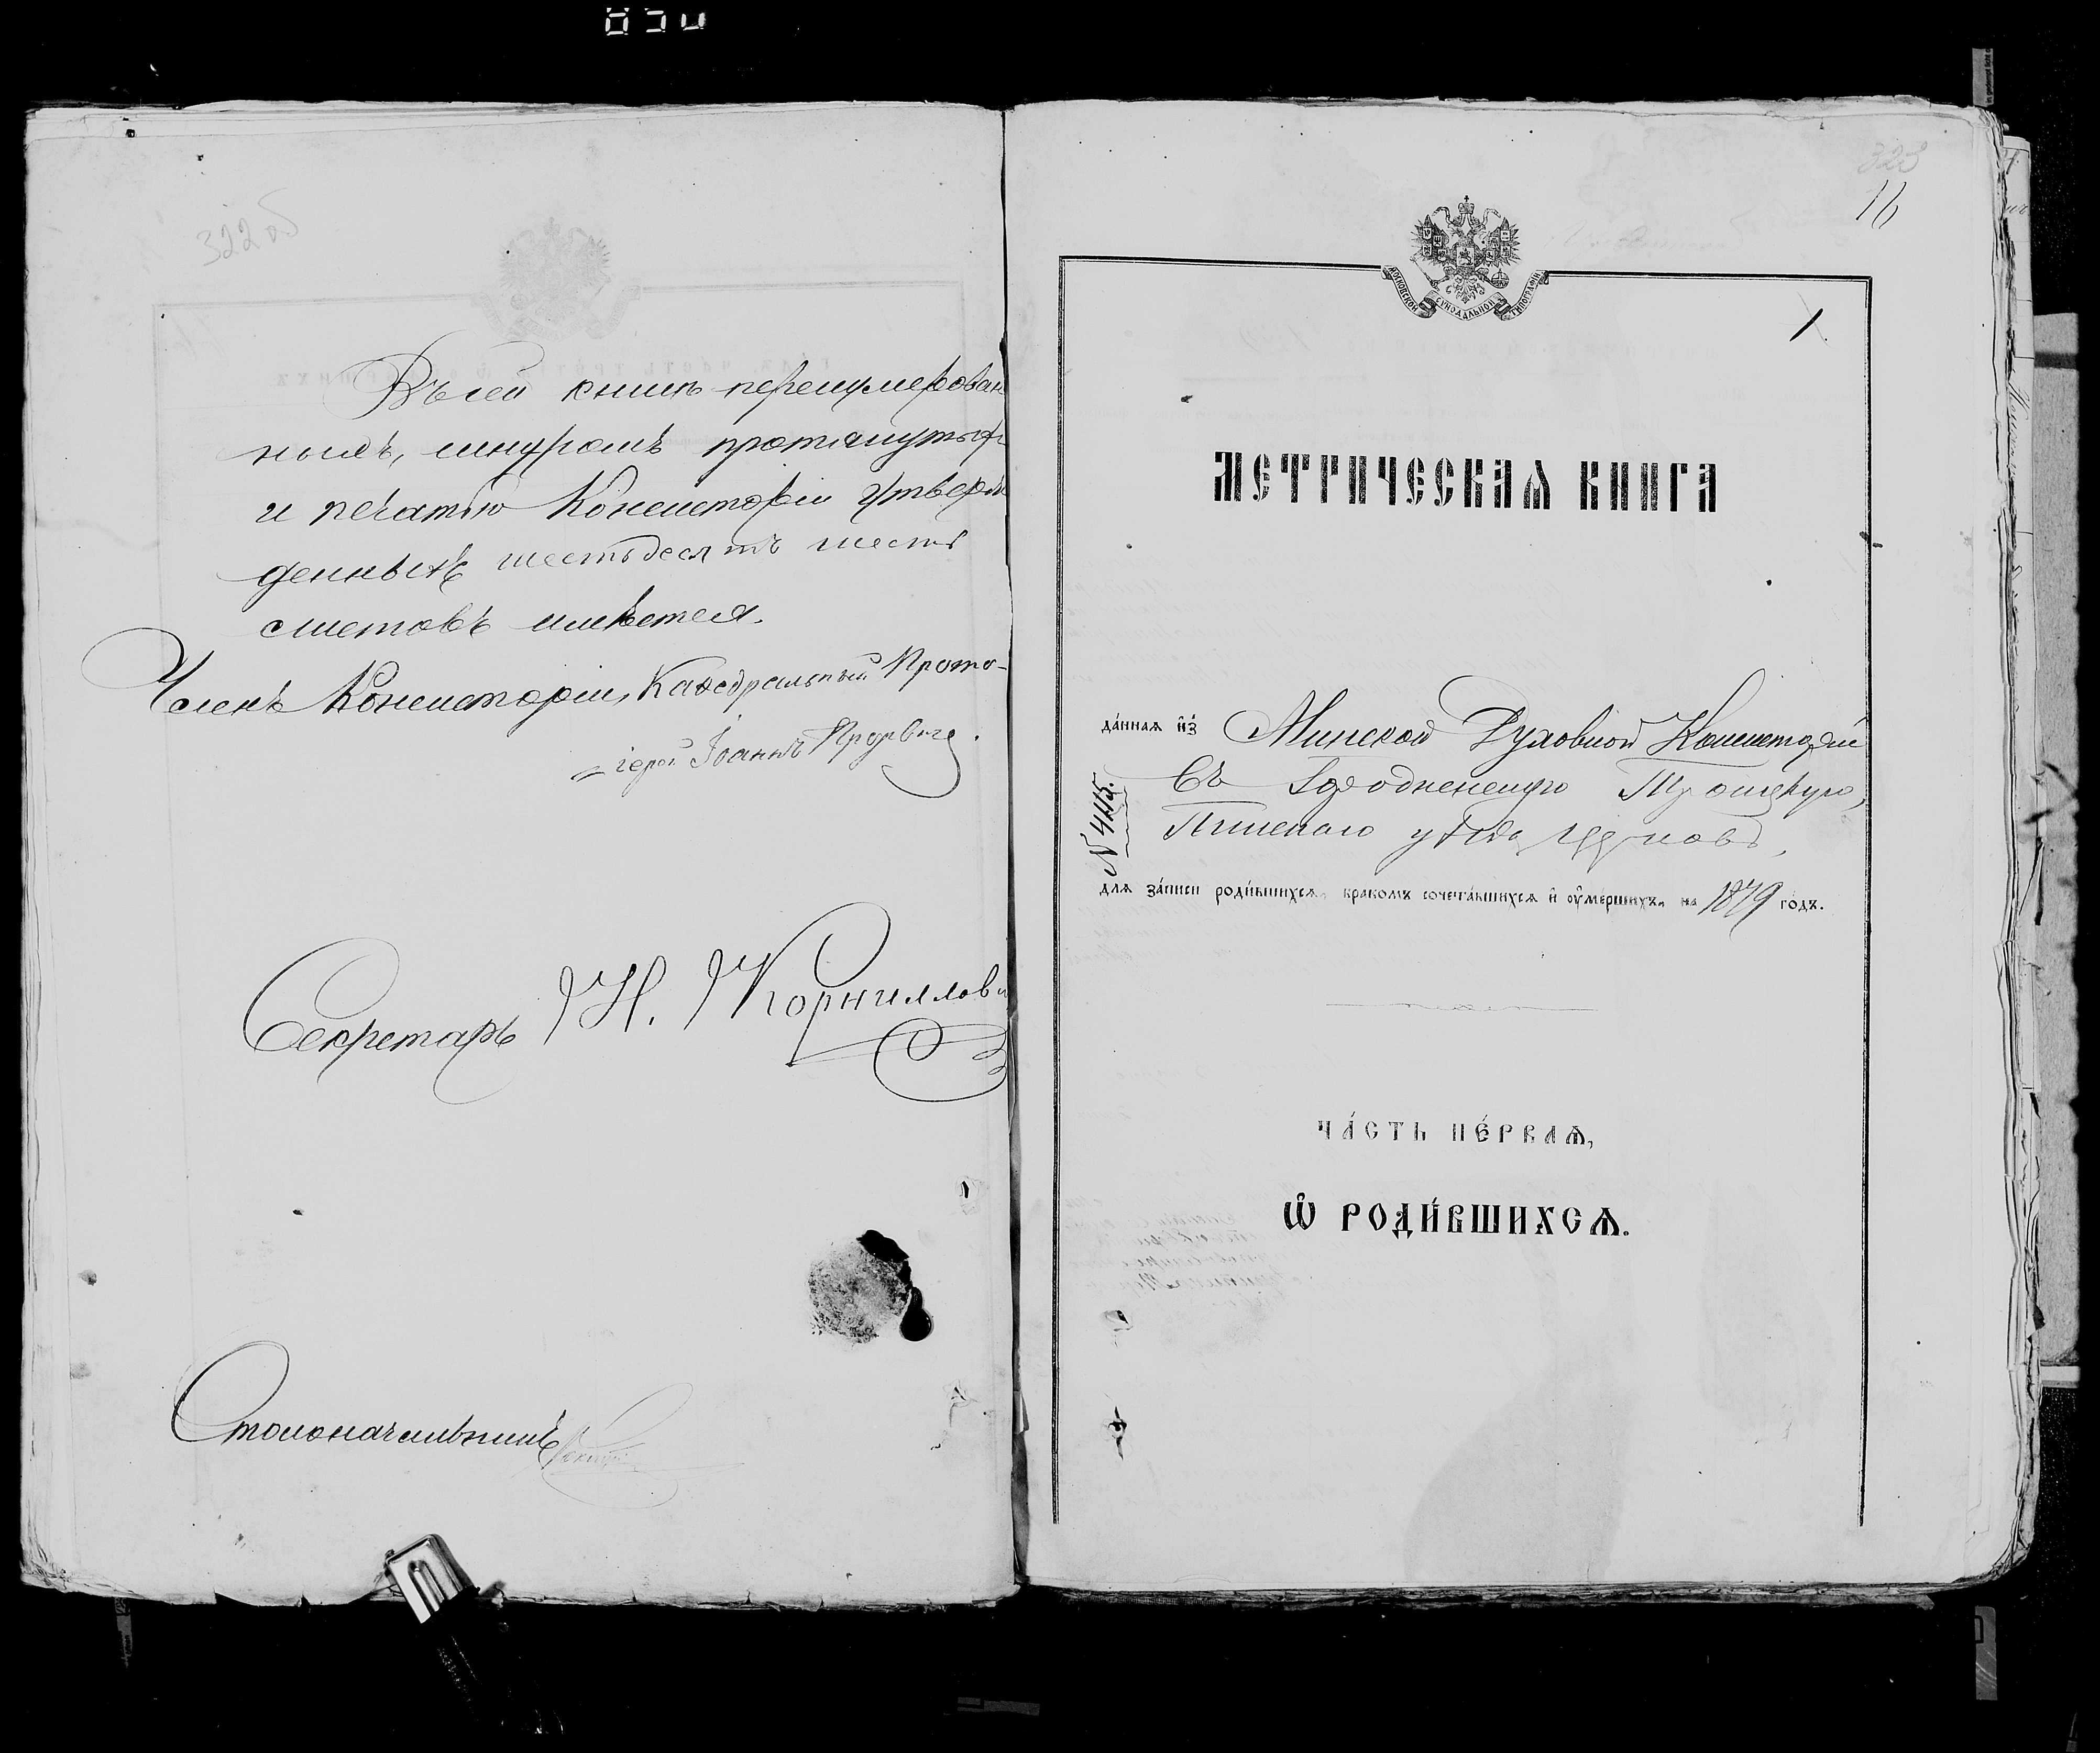 322 об
Въ сей книгѣ перенумерован
ныхъ, шнуромъ протянутыхъ
и печатью Консисторіи утверж
денныхъ шестьдесятъ шесть
листовъ имѣется.
Членъ Консисторіи, Каѳедральный Прото-
іерей Іоаннъ
Секретарь Н. Корнилови
Столоначальникъ
323
16
МОСКОВСКОЙ СѴНОДАЛЬНОЙ ТИПОГРАФІИ
1
МЕТРИЧЕСКАѦ КНИГА
да́ннаѧ и҆з̾ Минской Духовной Консисторіи
Въ Городненскую Троицкую,
Пинскаго уѣзда церковь,
N 415.
длѧ за́писи роди́вшихсѧ, бракомъ сочета́вшихсѧ и҆ ᲂу҆ме́ршихъ, на 1879 го́дъ.
ЧА́СТЬ ПЕ́РВАѦ,
Ѡ҆ РОДИ́ВШИХСѦ.